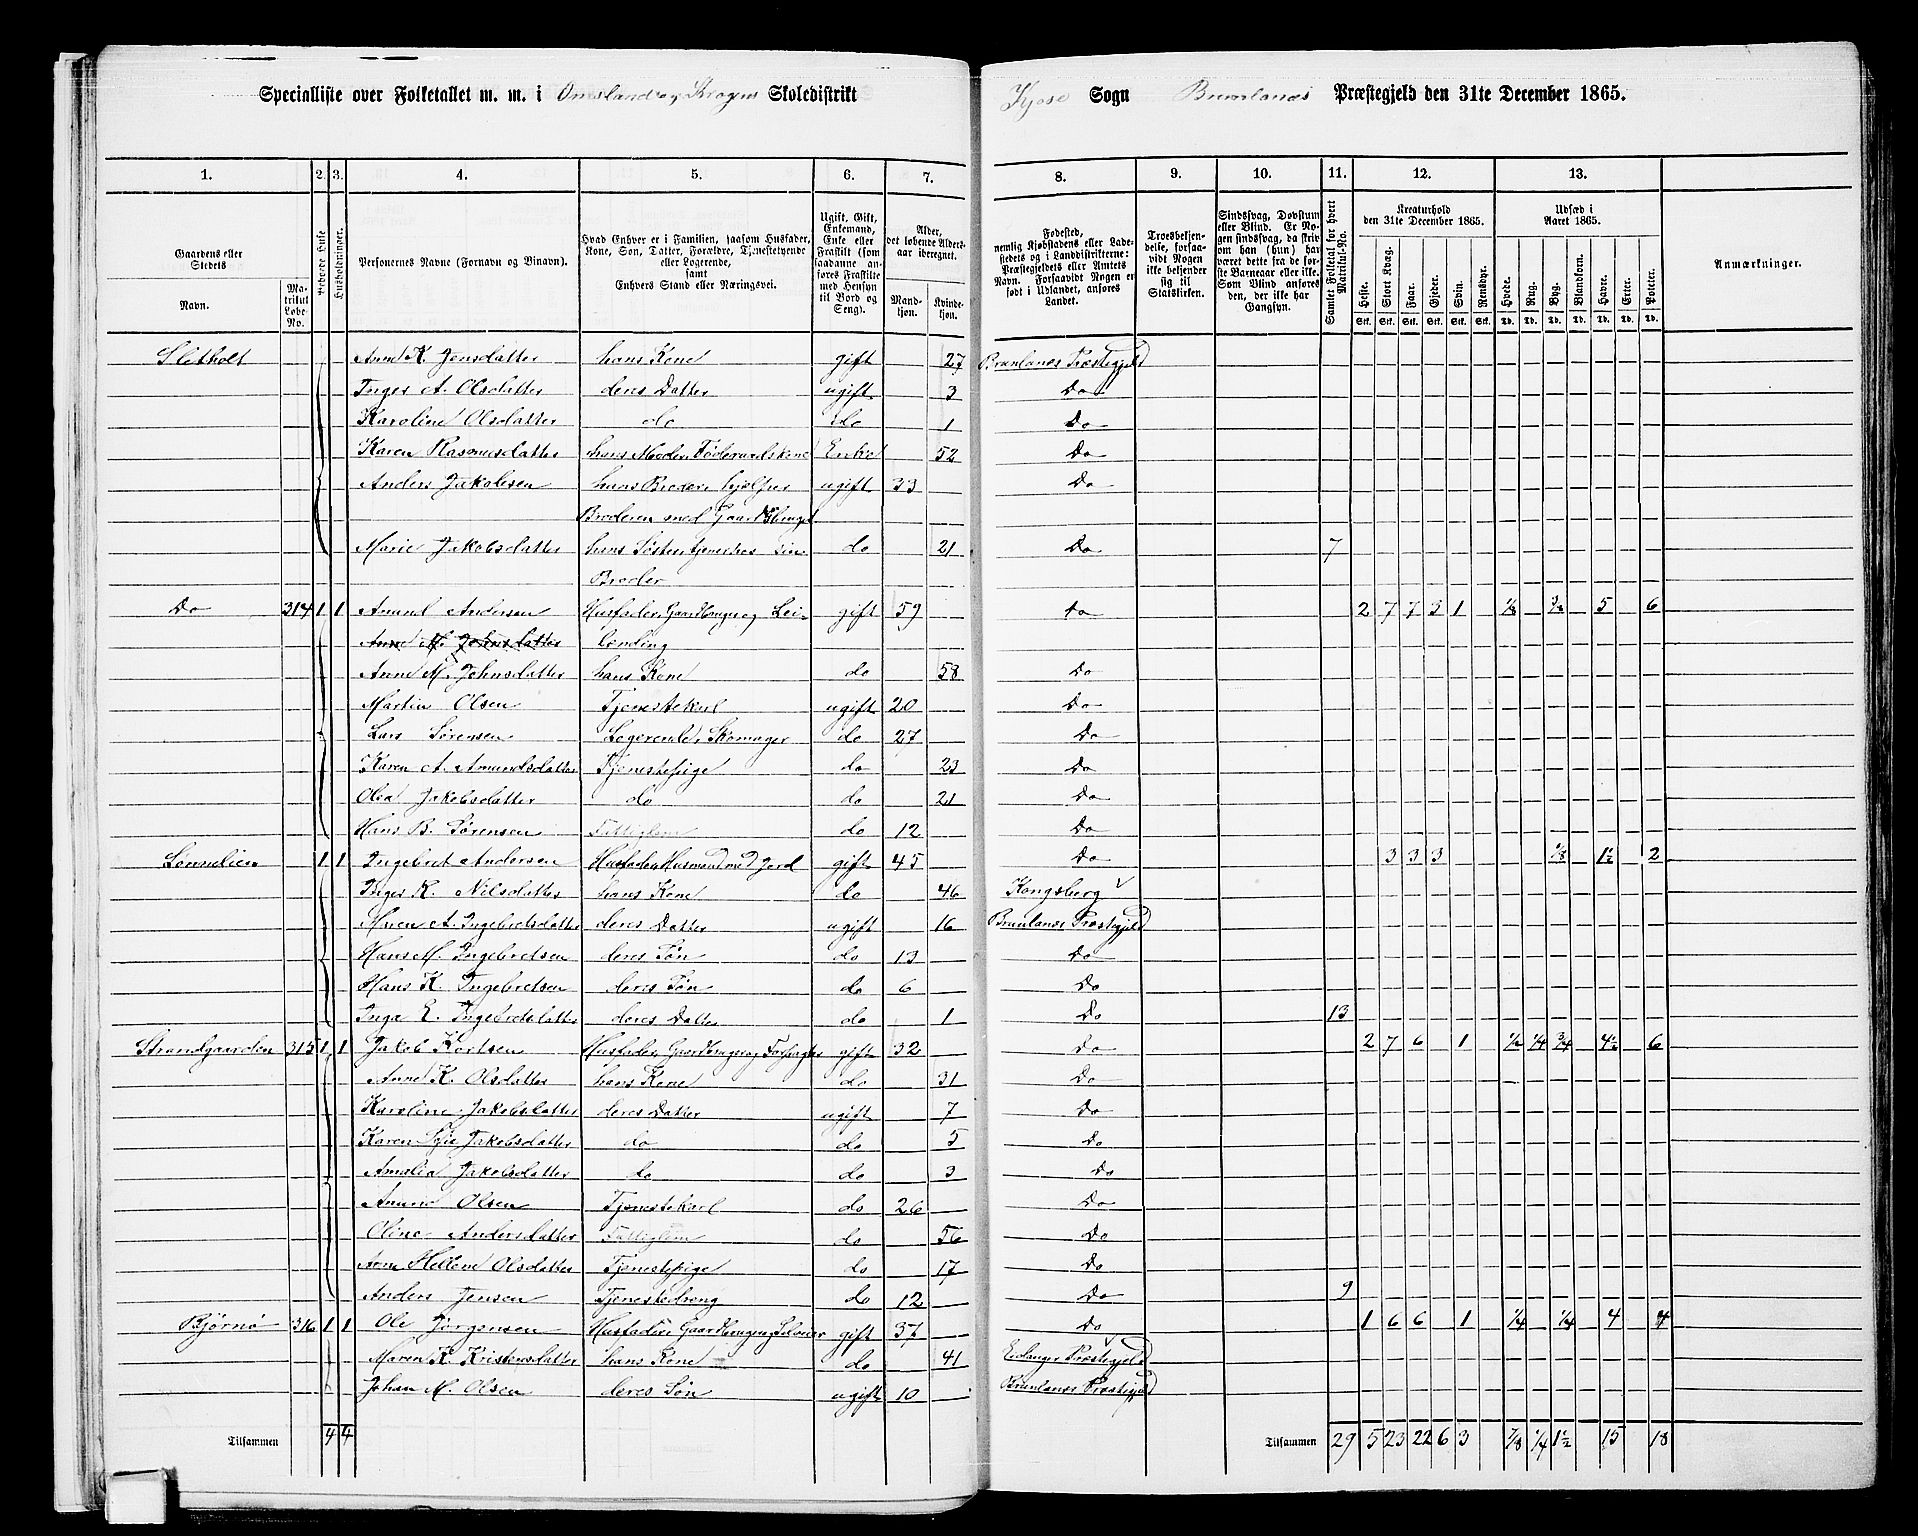 Specialliste over Folketallet m. m. i Skoledistrikt Kjose Sogn Brunlanæs Præstegjeld den 31te December 1865.
1. 2. 3. 4. 5. 6. 7. 8. 9. 10. 11. 12. 13.
Gaardens eller Stedets Navn. Matrikul Løbe-No. Beboede Huse Husholdninger. Personernes Navne (Fornavn og Binavn). Hvad Enhver er i Familien, saasom Husfader, Kone, Søn, Datter, Forældre, Tjenestetyende eller Logerende, samt Enhvers Stand eller Næringsvei. Ugift, Gift, Enkemand, Enke eller Fraskilt (som saadanne anføres Fraskilte med Hensyn til Bord og Seng). Alder, det løbende Alders-aar iberegnet. Mandkjøn. Kvindekjøn. Fødested, nemlig Kjøbstadens eller Ladestedets og i Landdistrikterne: Præstegjeldets eller Amtets Navn. Forsaavidt Nogen er født i Udlandet, anføres Landet. Troesbekjendelse, forsaavidt Nogen ikke bekjender sig til Statskirken. Sindssvag, Døvstum eller Blind. Er Nogen sindssvag, da skrives om han (hun) har været dette fra de første Barneaar eller ikke. Som Blind anføres den, der ikke har Gangsyn. Samlet Folketal for hvert Matrikul-No. Kreaturhold den 31te December 1865. Udsæd i Aaret 1865. Anmærkninger.
Heste. Stort Kvæg. Faar. Gjeder. Svin. Rensdyr. Hvede. Rug. Byg. Blandkorn. Havre. Erter. Poteter.
Stk. Stk. Stk. Stk. Stk. Stk. Td. Td. Td. Td. Td. Td. Td.
Sletholt Anne K. Jensdatter hans Kone gift 27 Brunlanæs Præstegjeld
Inger A. Olsdatter deres Datter ugift 3 Do
Karoline Olsdatter do do 1 Do
Karen Rasmusdatter hans Moder, Føderaadskone Enke 52 Do
Anders Jakobsen hans Broder, hjelper ugift 33 Do
Broderen med Gaardsbruget
Marie Jakobsdatter hans Søster, tjener hos sin do 21 Do 7
Broder
Do 314 1 1 Amund Andersen Husfader, Gaardbruger og Lei- gift 59 Do 2 7 7 3 1 1/8 3/4 5 6
Anne M. Johnsdatter lænding
Anne M. Johnsdatter hans Kone do 58 Do
Martin Olsen Tjenestekarl ugift 20 Do
Lars Sørensen Logerende, Skomager do 27 Do
Karen A. Amundsdatter Tjenestepige do 23 Do
Olea Jakobsdatter do do 21 Do
Hans B. Sørensen Fattiglem do 12 Do
Lønnelien 1 1 Ingebret Andersen Husfader, Husmand med Jord gift 45 Do 3 3 3 1/8 1½ 2
Inger K. Nilsdatter hans Kone do 46 Kongsberg
Maren A. Ingebretsdatter deres Datter ugift 16 Brunlanæs Præstegjeld
Hans M. Ingebretsen deres Søn do 13 Do
Hans K. Ingebretsen deres Søn do 6 Do
Inga E. Ingebretsdatter deres Datter do 1 Do 13
Strandgaarden 315 1 1 Jakob Kortsen Husfader, Gaardbruger og Forpagter gift 32 Do 2 7 6 1 ½ ¼ ¾ 4½ 6
Anne K. Olsdatter hans Kone do 31 Do
Karoline Jakobsdatter deres Datter ugift 7 Do
Karen Jakobsdatter do do 5 Do
Amalia Jakobsdatter do do 3 Do
Olsen Tjenestekarl do 26 Do
Oline Andersdatter Fattiglem do 56 Do
Hellene Olsdatter Tjenestepige do 17 Do
Anders Jensen Tjenestedreng do 12 Do 9
Bjørnø 316 1 1 Ole Jørgensen Husfader, Gaardbruger og Selveier gift 37 Do 1 6 6 1 ¼ ¼ 4 4
Maren K. Kristensdatter hans Kone do 41 Eidanger Præstegjeld
Johan M. Olsen deres Søn ugift 10 Brunlanæs Præstegjeld
Tilsammen 4 4 Tilsammen 29 5 23 22 6 3 7/8 ¼ 1½ 15 18